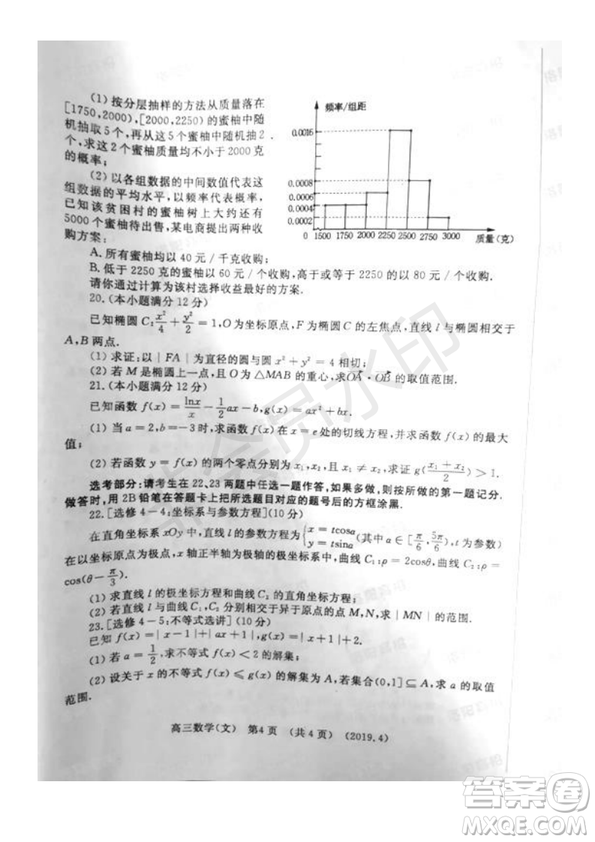 (1)按分层抽样的方法从质量落在
[1750,2000),[2000,2250)的蜜柚中随
机抽取5个,再从这5个蜜柚中随机抽2
个,求这2个蜜柚质量均不小于2000克
的概率;
(2)以各组数据的中间数值代表这
组数据的平均水平,以频率代表概率,
已知该贫困村的蜜柚树上大约还有
5000个蜜柚待出售,某电商提出两种收
购方案:
频率/组距
0.0016
0.0008
0.0006
0.0004
0.0002
0 1500 1750 2000 2250 2500 2750 3000 质量(克)
A. 所有蜜柚均以40元/千克收购;
B. 低于2250克的蜜柚以60元/个收购,高于或等于2250的以80元/个收购.
请你通过计算为该村选择收益最好的方案.
20.(本小题满分12分)
已知椭圆C:x²/4+y²/2=1,O为坐标原点,F为椭圆C的左焦点,直线l与椭圆相交于
A,B两点.
(1)求证:以|FA|为直径的圆与圆x²+y²=4相切;
(2)若M是椭圆上一点,且O为△MAB的重心,求OA·OB的取值范围.
21.(本小题满分12分)
已知函数f(x)=lnx/x-1/2ax-b,g(x)=ax²+bx.
(1)当a=2,b=-3时,求函数f(x)在x=e处的切线方程,并求函数f(x)的最大
值;
(2)若函数y=f(x)的两个零点分别为x₁,x₂,且x₁≠x₂,求证:g((x₁+x₂)/2)>1.
选考部分:请考生在22、23两题中任选一题作答,如果多做,则按所做的第一题记分.
做答时,用2B铅笔在答题卡上把所选题目对应的题号后的方框涂黑.
22.[选修4-4:坐标系与参数方程](10分)
在直角坐标系xOy中,直线l的参数方程为{x=tcosα y=tsinα(其中α∈[π/6,5π/6],t为参数)
在以坐标原点为极点,x轴正半轴为极轴的极坐标系中,曲线C₁:ρ=2cosθ,曲线C₂:ρ=
cos(θ-π/3).
(1)求直线l的极坐标方程和曲线C₂的直角坐标方程;
(2)若直线l与曲线C₁,C₂分别相交于异于原点的点M,N,求|MN|的范围.
23.[选修4-5:不等式选讲](10分)
已知f(x)=|x-1|+|ax+1|,g(x)=|x|+2.
(1)若a=1/2,求不等式f(x)≤2的解集;
(2)设关于x的不等式f(x)≤g(x)的解集为A,若集合(0,1]⊆A,求a的取值
范围.
高三数学(文) 第4页 (共4页) (2019.4)
答案圈
MXQE.COM